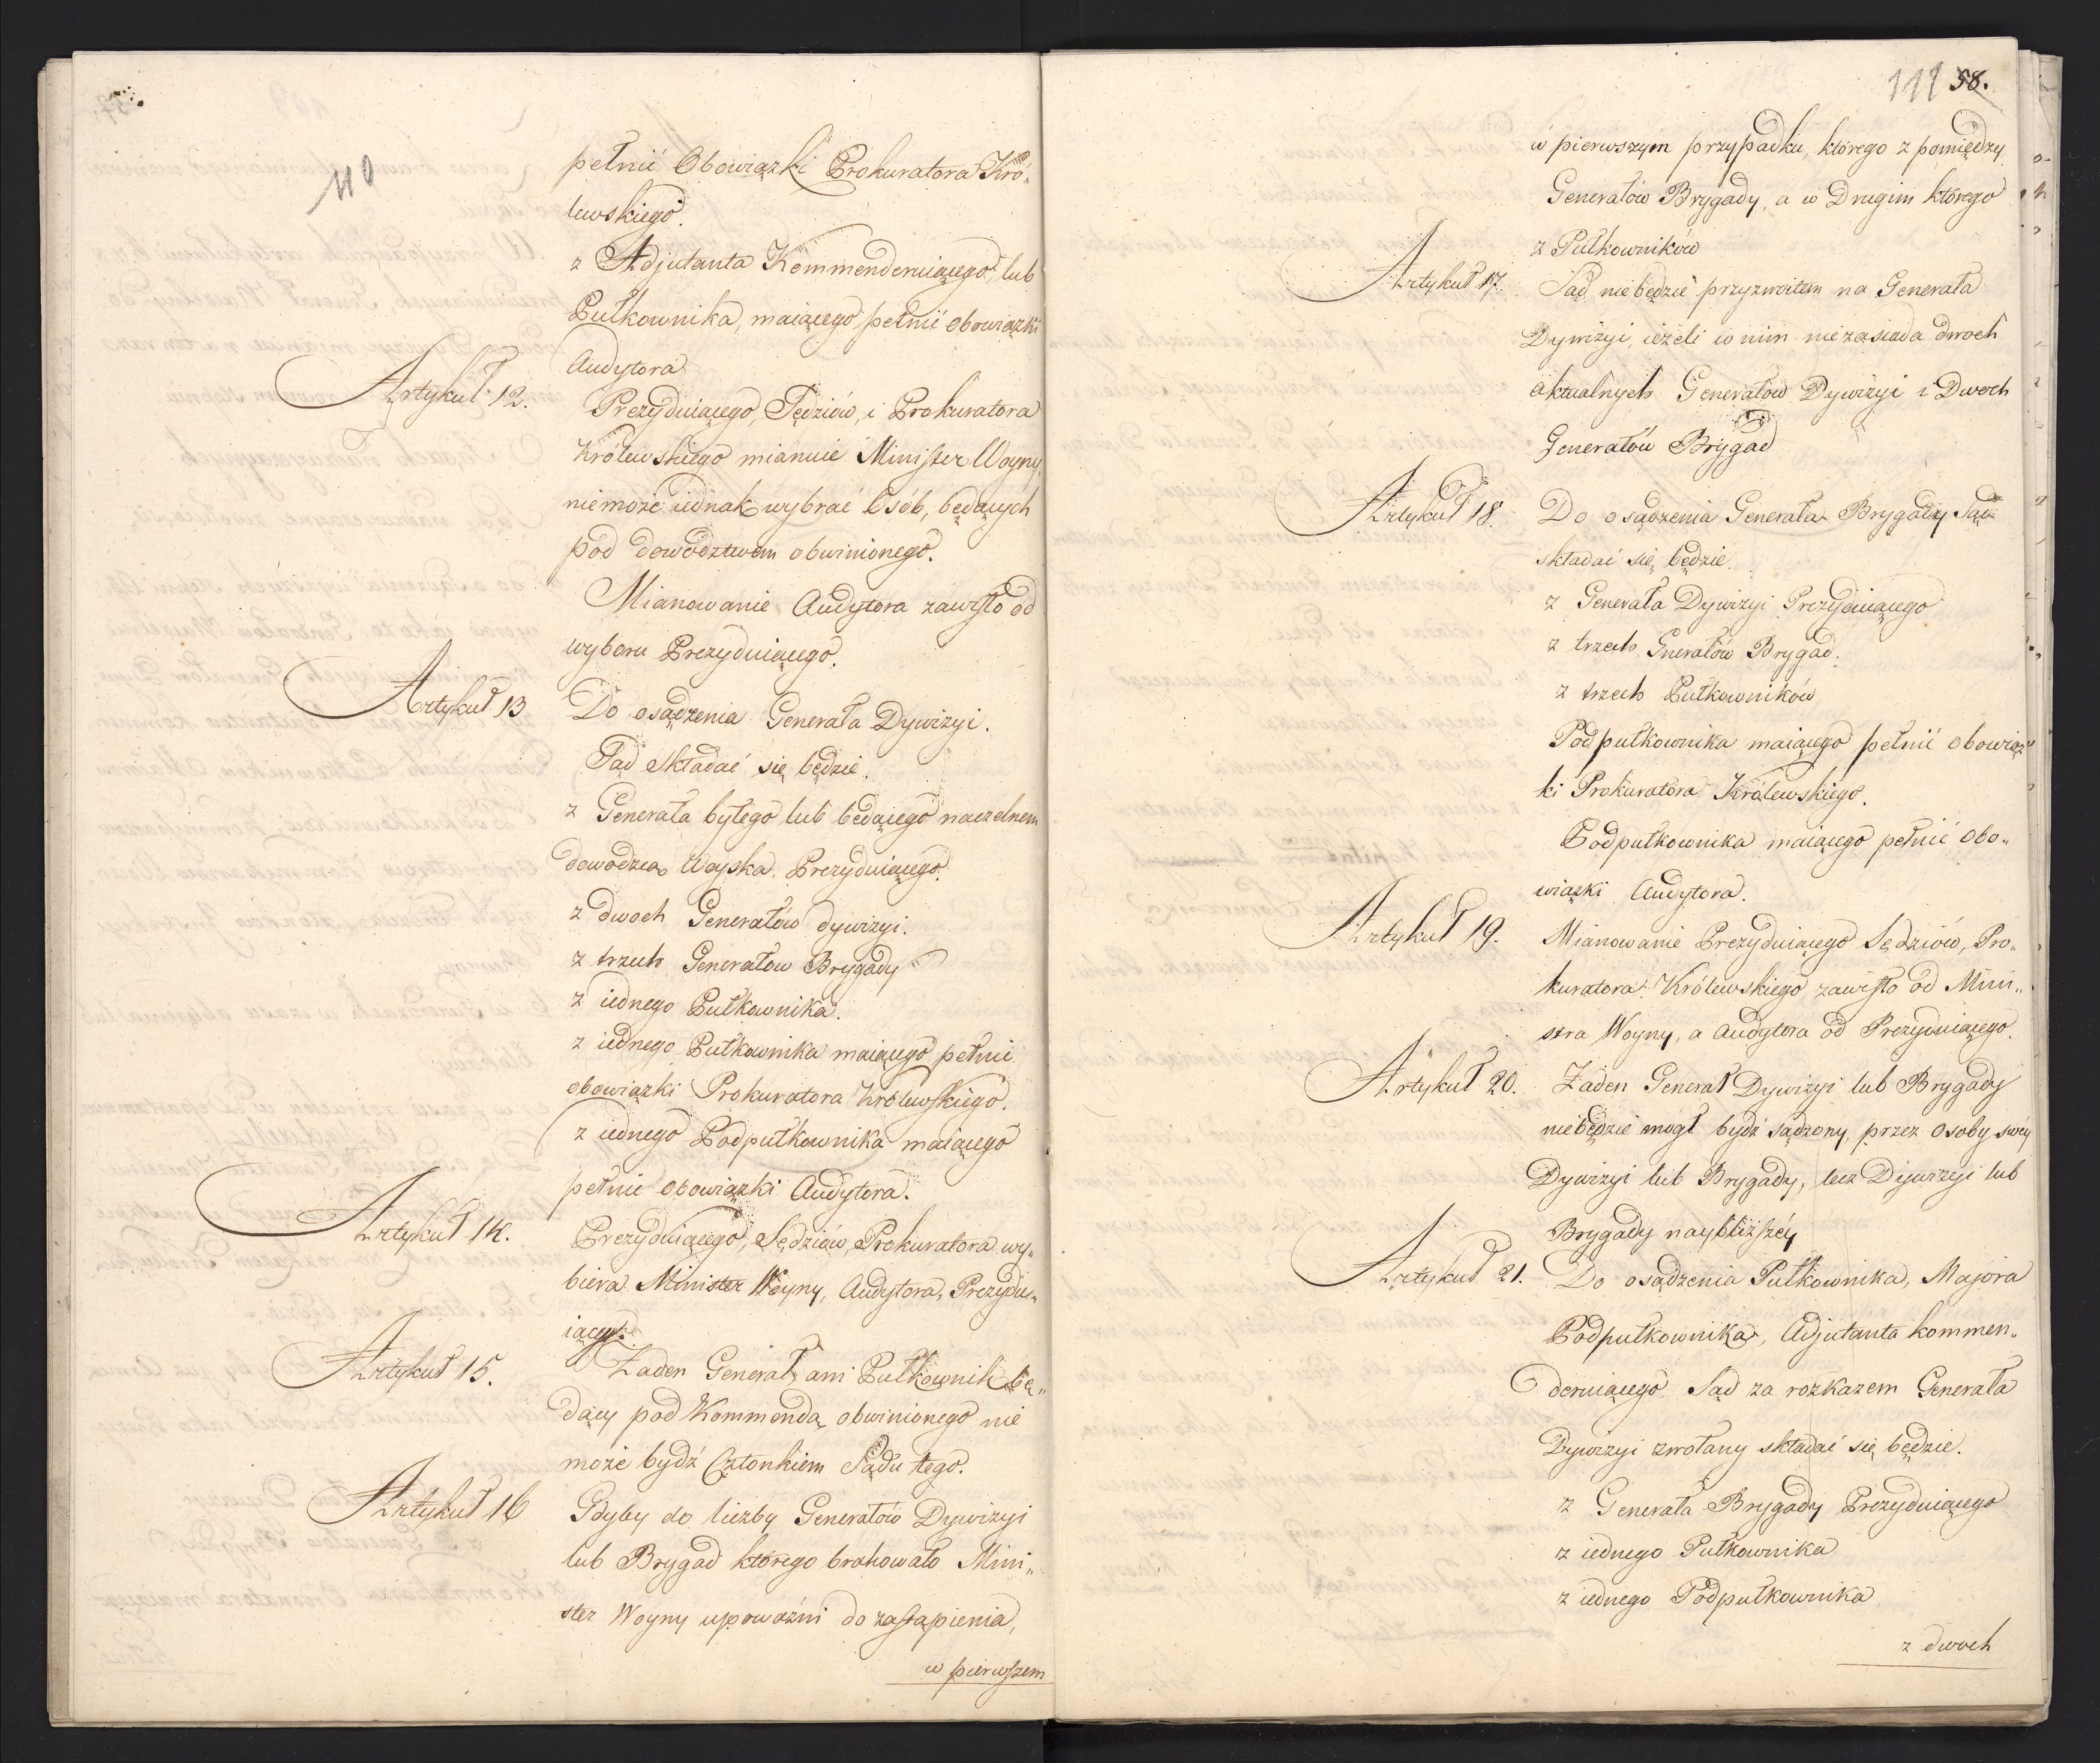 110
pełnić Obowiązki Prokuratora Kró„
lewskiego.
z Adjutanta Kommenderuiącego, lub
Pułkownika, maiącego pełnić obowiązki
Audytora
Artykuł 12.
Prezyduiącego, Sędziów, i Prokuratora
Królewskiego mianuie Minister Woyny,
niemoże iednak wybrać Osób, będących
pod dowodztwem obwinionego.
Mianowanie Audytora zawisło od
wyboru Prezyduiącego.
Artykuł 13
Do osądzenia Generała Dywizyi.
Sąd składać się będzie.
z Generała byłego lub będącego naczelnem
dowodzcą Woyska, Prezyduiącego.
z dwoch Generałów dywizyi.
z trzech Generałow Brygady
z iednego Pułkownika.
z iednego Pułkownika maiącego pełnić
obowiązki Prokuratora Królewskiego.
z iednego Podpułkownika maiącego
pełnić obowiązki Audytora.
Artykuł 14.
Prezyduiącego, Sędziów, Prokuratora wy„
biera Minister Woyny, Audytora, Prezydu„
iący.
Artykuł 15.
Żaden Generał, ani Pułkownik bę„
dący pod Kommendą obwinionego nie
może bydź Członkiem Sądu tego.
Artykuł 16
Gdyby do liczby Generałów Dywizyi
lub Brygad którego brakowało Mini„
ster Woyny upoważni do zastąpienia,
w pierwszem
111 58.
w pierwszym przypadku, którego z pomiędzy
Generałów Brygady, a w Drugim którego
z Pułkowników
Artykuł 17.
Sąd niebędzie przyzwoitem na Generała
Dywizyi, ieżeli w nim niezasiada dwoch
aktualnych Generałow Dywizyi i Dwoch
Generałów Brygad
Artykuł 18.
Do osądzenia Generała Brygady Sąd
składać się będzie.
z Generała Dywizyi Prezyduiącego
z trzech Gnerałów Brygad.
z trzech Pułkowników
Podpułkownika maiącego pełnić obowiąz„
ki Prokuratora Królewskiego.
Podpułkownika maiącego pełnić obo„
wiązki Audytora.
Artykuł 19.
Mianowanie Prezyduiącego Sędziów, Pro„
kuratora Królewskiego zawisło od Mini„
stra Woyny, a Audytora od Prezyduiącego.
Artykuł 20.
Żaden Generał Dywizyi lub Brygady
niebędzie mógł bydź sądzony przez osoby swey
Dywizyi lub Brygady, lecz Dywizyi lub
Brygady naybliższéy
Artykuł 21.
Do osądzenia Pułkownika, Majora
Podpułkownika, Adjutanta kommen„
deruiącego, Sąd za rozkazem Generała
Dywizyi zwołany składać się będzie.
z Generała Brygady Prezyduiącego
z iednego Pułkownika
z iednego Podpułkownika
z dwoch